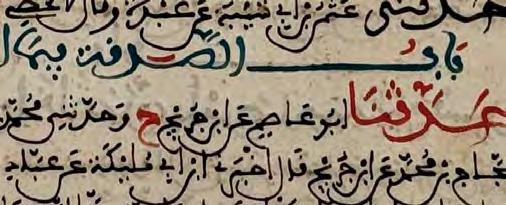 حدثني عثمن بن ابي شيبة عن عبدة وقال لا تحصي
باب الصدقة فيما ا
حدثنا ابو عاصم عن ابن جريج ح وحدثني محمد
حجاج بن محمد عن ابن جريج قال اخبرني ابن ابي مليكة عن عباد